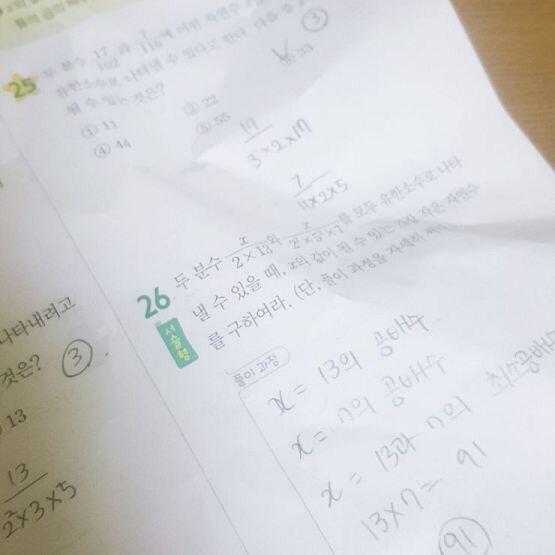 25
두 분수 17/102 과 7/110에 어떤 자연수
유한소수로 나타낼 수 있다고 한다. 다음 중
될 수 있는 것은?
③
① 11 ② 22 ③ 33
④ 44 ⑤ 55
17/3×2×17
7/11×2×5
26
서술형
두 분수 x/2×13와 x/2²×5×7를 모두 유한소수로 나타
낼 수 있을 때, x의 값이 될 수 있는 가장 작은 자연수
를 구하여라. (단, 풀이 과정을 자세히
풀이 과정
x = 13의 공배수
x = 7의 공배수
x = 13과 7의 최소공배수
13×7= 91
91
나타내려고
것은? ③
13
13/2²×3×5